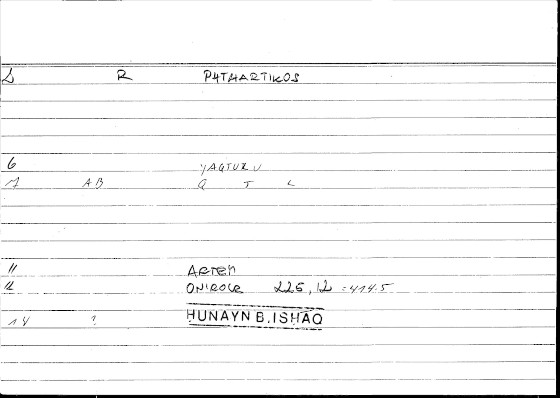 2 R PHTHARTIKOS
6 YAQTULU
7 AB Q T L
11 ARTEM
12 ONIROCR 226, 12 = 414.5
14 ? HUNAYN B. ISHAQ